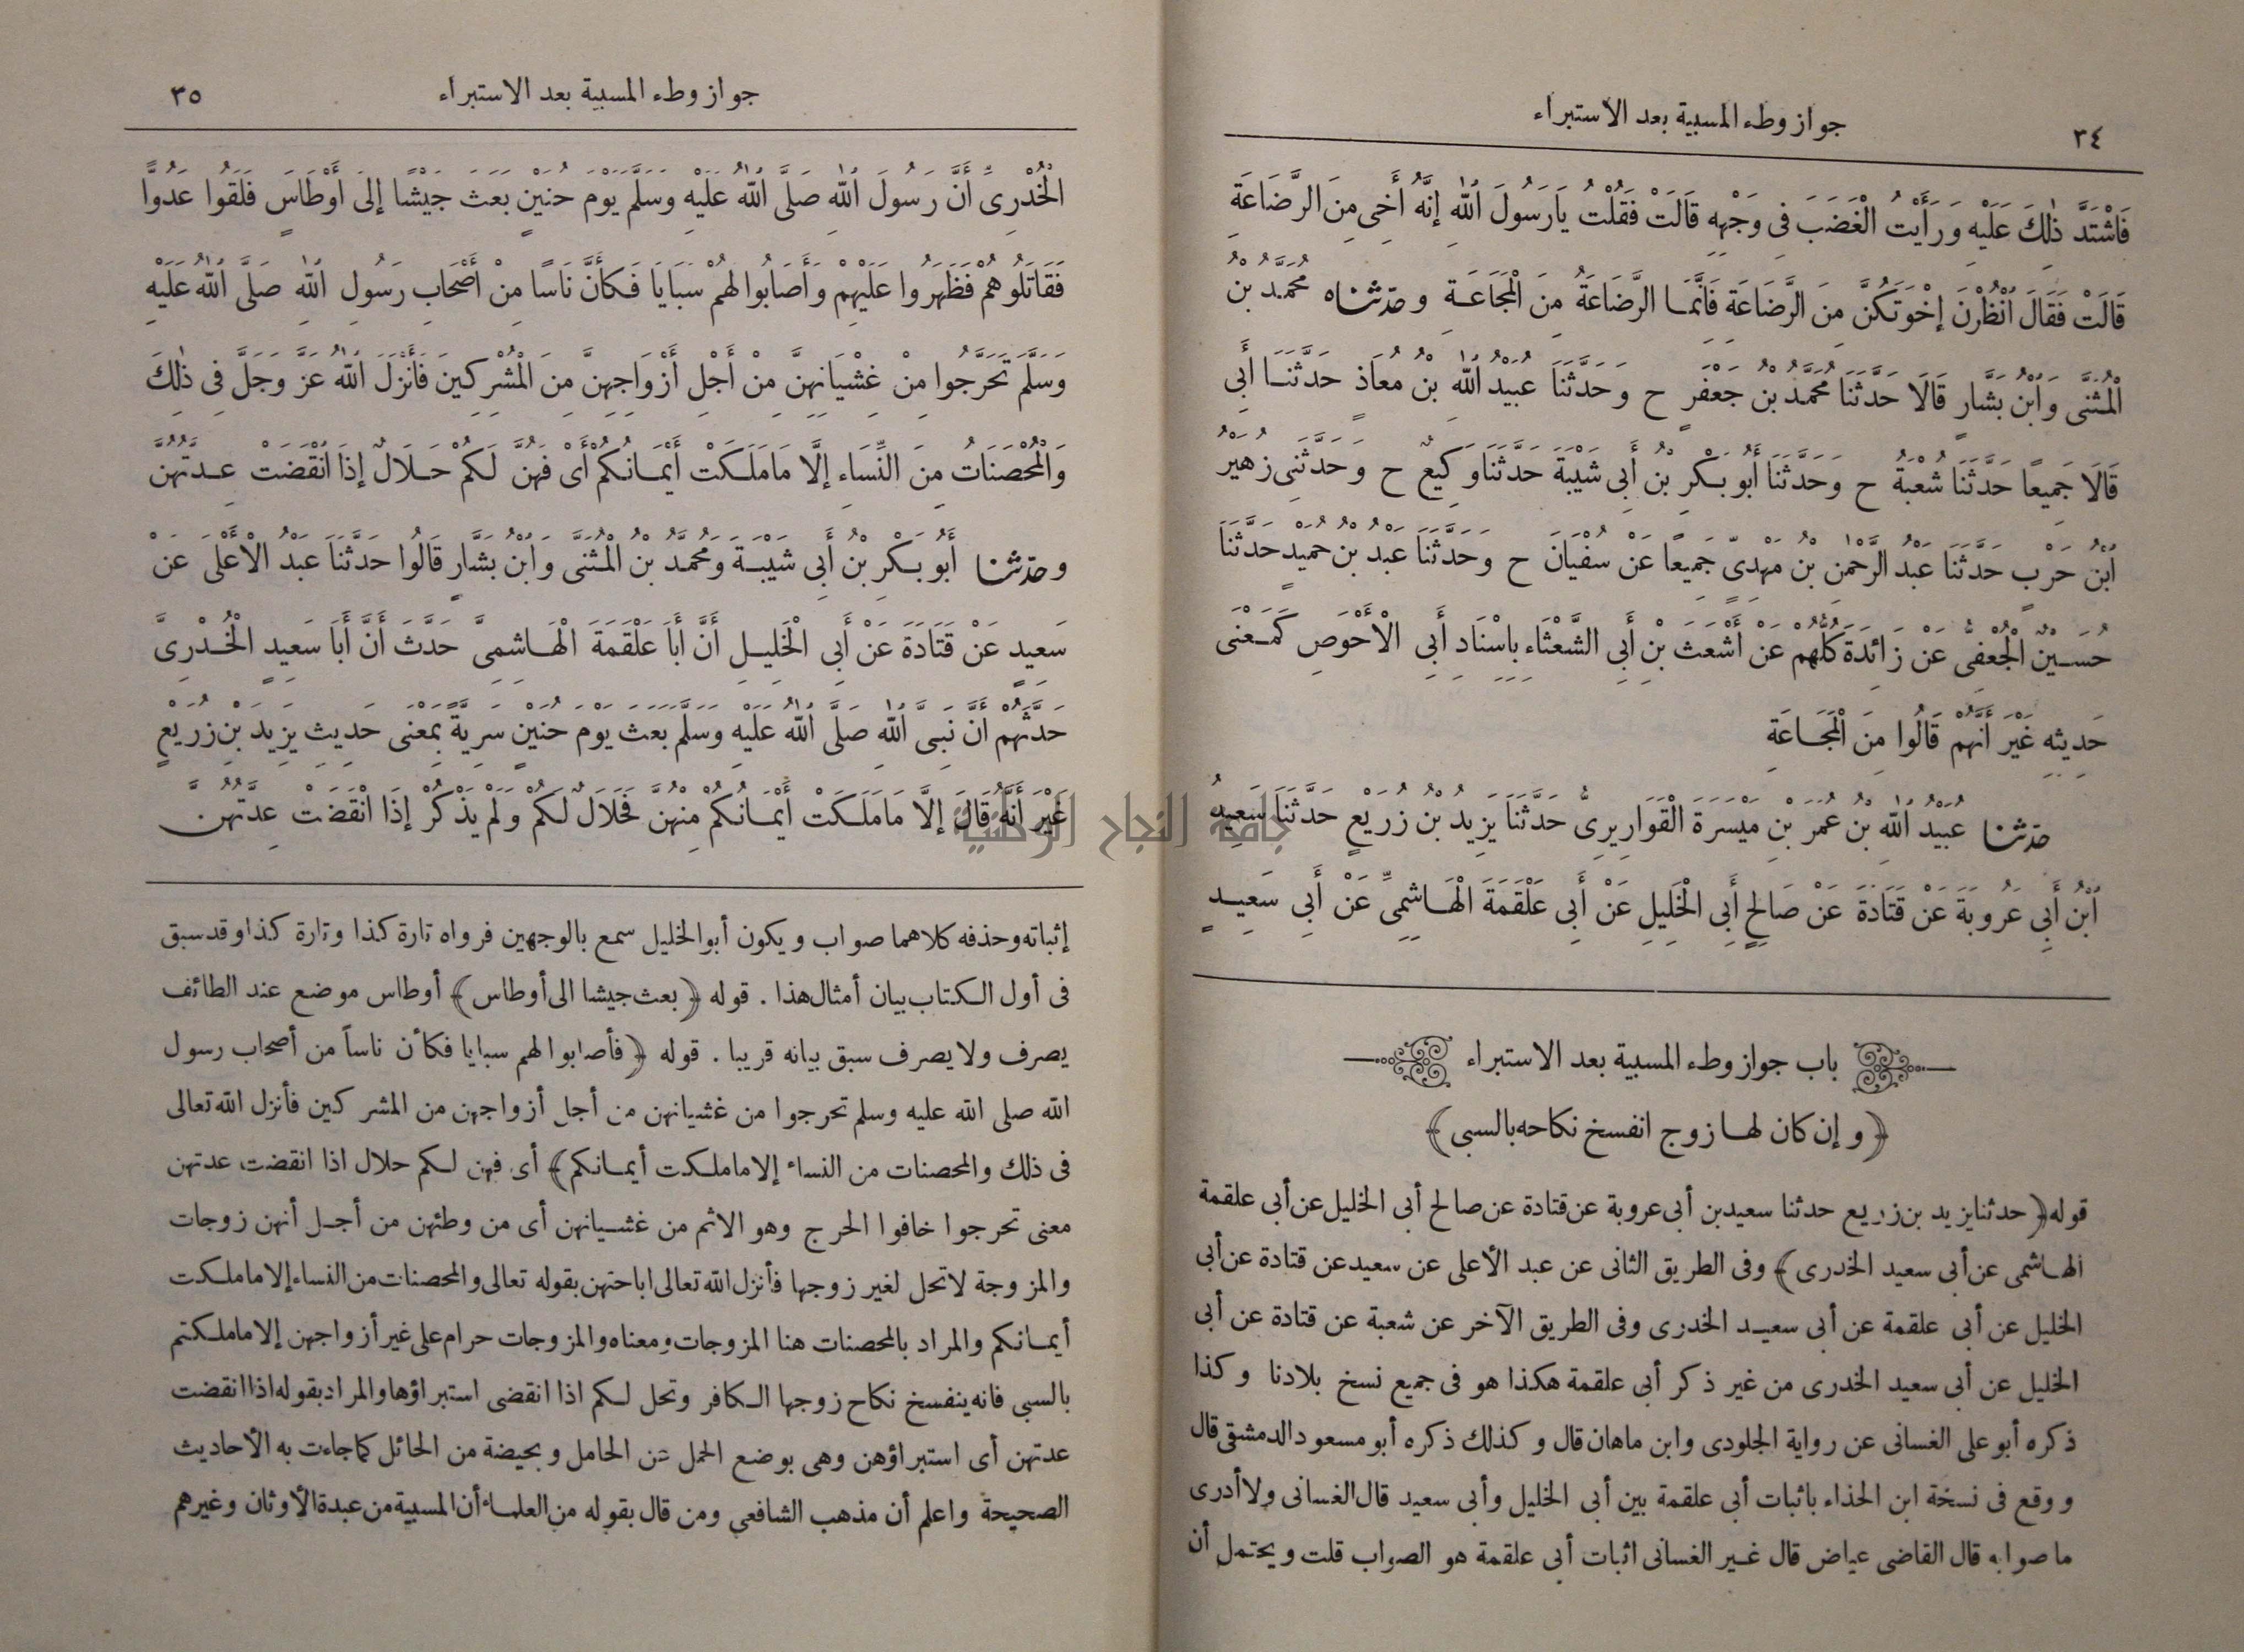 ٣٤
جواز وطء المسبية بعد الاستبراء
فَاشْتَدَّ ذٰلِكَ عَلَيْهِ وَرَأَيْتُ الْغَضَبَ فِى وَجْهِهِ قَالَتْ فَقُلْتُ يَارَسُولَ اللهِ إِنَّهُ أَخِى مِنَ الرَّضَاعَةِ
قَالَتْ فَقَالَ اُنْظُرْنَ إِخْوَتَكُنَّ مِنَ الرَّضَاعَةِ فَإِنَّمَا الرَّضَاعَةُ مِنَ الْمَجَاعَةِ وحدثناه مُحَمَّدُ بْنُ
الْمُثَنَّى وَابْنُ بَشَّارٍ قَالَا حَدَّثَنَا مُحَمَّدُ بْنُ جَعْفَرٍ ح وَحَدَّثَنَا عُبَيْدُ اللهِ بْنُ مُعَاذٍ حَدَّثَنَا أَبِى
قَالَا جَمِيعًا حَدَّثَنَا شُعْبَةُ ح وَحَدَّثَنَا أَبُو بَكْرِ بْنُ أَبِى شَيْبَةَ حَدَّثَنَا وَكِيعٌ ح وَحَدَّثَنِى زُهَيْرُ
ابْنُ حَرْبٍ حَدَّثَنَا عَبْدُ الرَّحْمٰنِ بْنُ مَهْدِىٍّ جَمِيعًا عَنْ سُفْيَانَ ح وَحَدَّثَنَا عَبْدُ بْنُ حُمَيْدٍ حَدَّثَنَا
حُسَيْنٌ الْجُعْفِىُّ عَنْ زَائِدَةَ كُلُّهُمْ عَنْ أَشْعَثَ بْنِ أَبِى الشَّعْثَاءِ بِإِسْنَادِ أَبِى الْأَحْوَصِ كَمَعْنَى
حَدِيثِهِ غَيْرَ أَنَّهُمْ قَالُوا مِنَ الْمَجَاعَةِ
حدثنا عُبَيْدُ اللهِ بْنُ عُمَرَ بْنِ مَيْسَرَةَ الْقَوَارِيرِىُّ حَدَّثَنَا يَزِيدُ بْنُ زُرَيْعٍ حَدَّثَنَا سَعِيدُ
ابْنُ أَبِى عَرُوبَةَ عَنْ قَتَادَةَ عَنْ صَالِحٍ أَبِى الْخَلِيلِ عَنْ أَبِى عَلْقَمَةَ الْهَاشِمِىِّ عَنْ أَبِى سَعِيدٍ
باب جواز وطء المسبية بعد الاستبراء
﴿و إن كان لها زوج انفسخ نكاحه بالسبى﴾
قوله ﴿حدثنا يزيد بن زريع حدثنا سعيد بن أبى عروبة عن قتادة عن صالح أبى الخليل عن أبى علقمة
الهاشمى عن أبى سعيد الخدرى﴾ وفى الطريق الثانى عن عبد الأعلى عن سعيد عن قتادة عن أبى
الخليل عن أبى علقمة عن أبى سعيد الخدرى وفى الطريق الآخر عن شعبة عن قتادة عن أبى
الخليل عن أبى سعيد الخدرى من غير ذكر أبى علقمة هكذا هو فى جميع نسخ بلادنا وكذا
ذكره أبو على الغسانى عن رواية الجلودى وابن ماهان قال وكذلك ذكره أبو مسعود الدمشقى قال
ووقع فى نسخة ابن الحذاء باثبات أبى علقمة بين أبى الخليل وأبى سعيد قال الغسانى ولا أدرى
ما صوابه قال القاضى عياض قال غير الغسانى اثبات أبى علقمة هو الصواب قلت ويحتمل أن
جواز وطء المسبية بعد الاستبراء
٣٥
الْخُدْرِىِّ أَنَّ رَسُولَ اللهِ صَلَّى اللهُ عَلَيْهِ وَسَلَّمَ يَوْمَ حُنَيْنٍ بَعَثَ جَيْشًا إِلَى أَوْطَاسٍ فَلَقُوا عَدُوًّا
فَقَاتَلُوهُمْ فَظَهَرُوا عَلَيْهِمْ وَأَصَابُوا لَهُمْ سَبَايَا فَكَأَنَّ نَاسًا مِنْ أَصْحَابِ رَسُولِ اللهِ صَلَّى اللهُ عَلَيْهِ
وَسَلَّمَ تَحَرَّجُوا مِنْ غِشْيَانِهِنَّ مِنْ أَجْلِ أَزْوَاجِهِنَّ مِنَ الْمُشْرِكِينَ فَأَنْزَلَ اللهُ عَزَّ وَجَلَّ فِى ذٰلِكَ
وَالْمُحْصَنَاتُ مِنَ النِّسَاءِ إِلَّا مَا مَلَكَتْ أَيْمَانُكُمْ أَىْ فَهُنَّ لَكُمْ حَلَالٌ إِذَا انْقَضَتْ عِدَّتُهُنَّ
وحدثنا أَبُو بَكْرِ بْنُ أَبِى شَيْبَةَ وَمُحَمَّدُ بْنُ الْمُثَنَّى وَابْنُ بَشَّارٍ قَالُوا حَدَّثَنَا عَبْدُ الْأَعْلَى عَنْ
سَعِيدٍ عَنْ قَتَادَةَ عَنْ أَبِى الْخَلِيلِ أَنَّ أَبَا عَلْقَمَةَ الْهَاشِمِىَّ حَدَّثَ أَنَّ أَبَا سَعِيدٍ الْخُدْرِىَّ
حَدَّثَهُمْ أَنَّ نَبِىَّ اللهِ صَلَّى اللهُ عَلَيْهِ وَسَلَّمَ بَعَثَ يَوْمَ حُنَيْنٍ سَرِيَّةً بِمَعْنَى حَدِيثِ يَزِيدَ بْنِ زُرَيْعٍ
غَيْرَ أَنَّهُ قَالَ إِلَّا مَا مَلَكَتْ أَيْمَانُكُمْ مِنْهُنَّ فَحَلَالٌ لَكُمْ وَلَمْ يَذْكُرْ إِذَا انْقَضَتْ عِدَّتُهُنَّ
إثباته وحذفه كلاهما صواب ويكون أبو الخليل سمع بالوجهين فرواه تارة كذا وتارة كذا وقد سبق
فى أول الكتاب بيان أمثال هذا . قوله ﴿بعث جيشا الى أوطاس﴾ أوطاس موضع عند الطائف
يصرف ولا يصرف سبق بيانه قريبا . قوله ﴿فأصابوا لهم سبايا فكأن ناساً من أصحاب رسول
الله صلى الله عليه وسلم تحرجوا من غشيانهن من أجل أزواجهن من المشركين فأنزل الله تعالى
فى ذلك والمحصنات من النساء إلا ما ملكت أيمانكم﴾ أى فهن لكم حلال اذا انقضت عدتهن
معنى تحرجوا خافوا الحرج وهو الاثم من غشيانهن أى من وطئهن من أجل أنهن زوجات
والمزوجة لا تحل لغير زوجها فأنزل الله تعالى اباحتهن بقوله تعالى والمحصنات من النساء إلا ما ملكت
أيمانكم والمراد بالمحصنات هنا المزوجات ومعناه والمزوجات حرام على غير أزواجهن إلا ما ملكتم
بالسبى فانه ينفسخ نكاح زوجها الكافر وتحل لكم اذا انقضى استبراؤها والمراد بقوله اذا انقضت
عدتهن أى استبراؤهن وهى بوضع الحمل عن الحامل وبحيضة من الحائل كما جاءت به الأحاديث
الصحيحة واعلم أن مذهب الشافعى ومن قال بقوله من العلماء أن المسبية من عبدة الأوثان وغيرهم
جامعة النجاح الوطنية